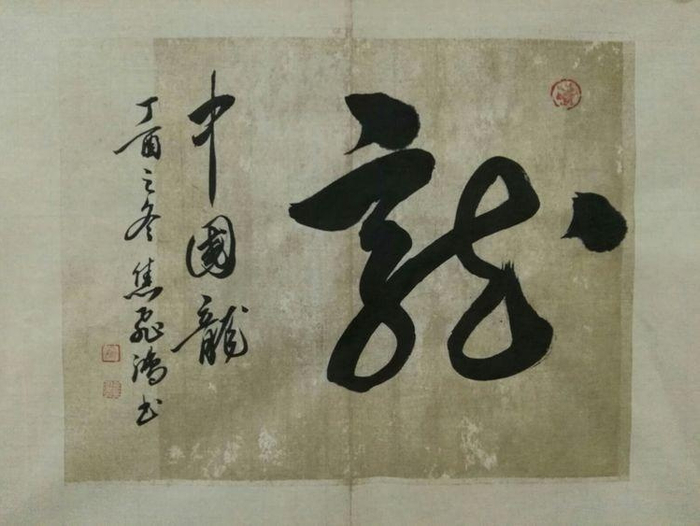 龍
中國龍
丁酉之冬焦飛鴻书